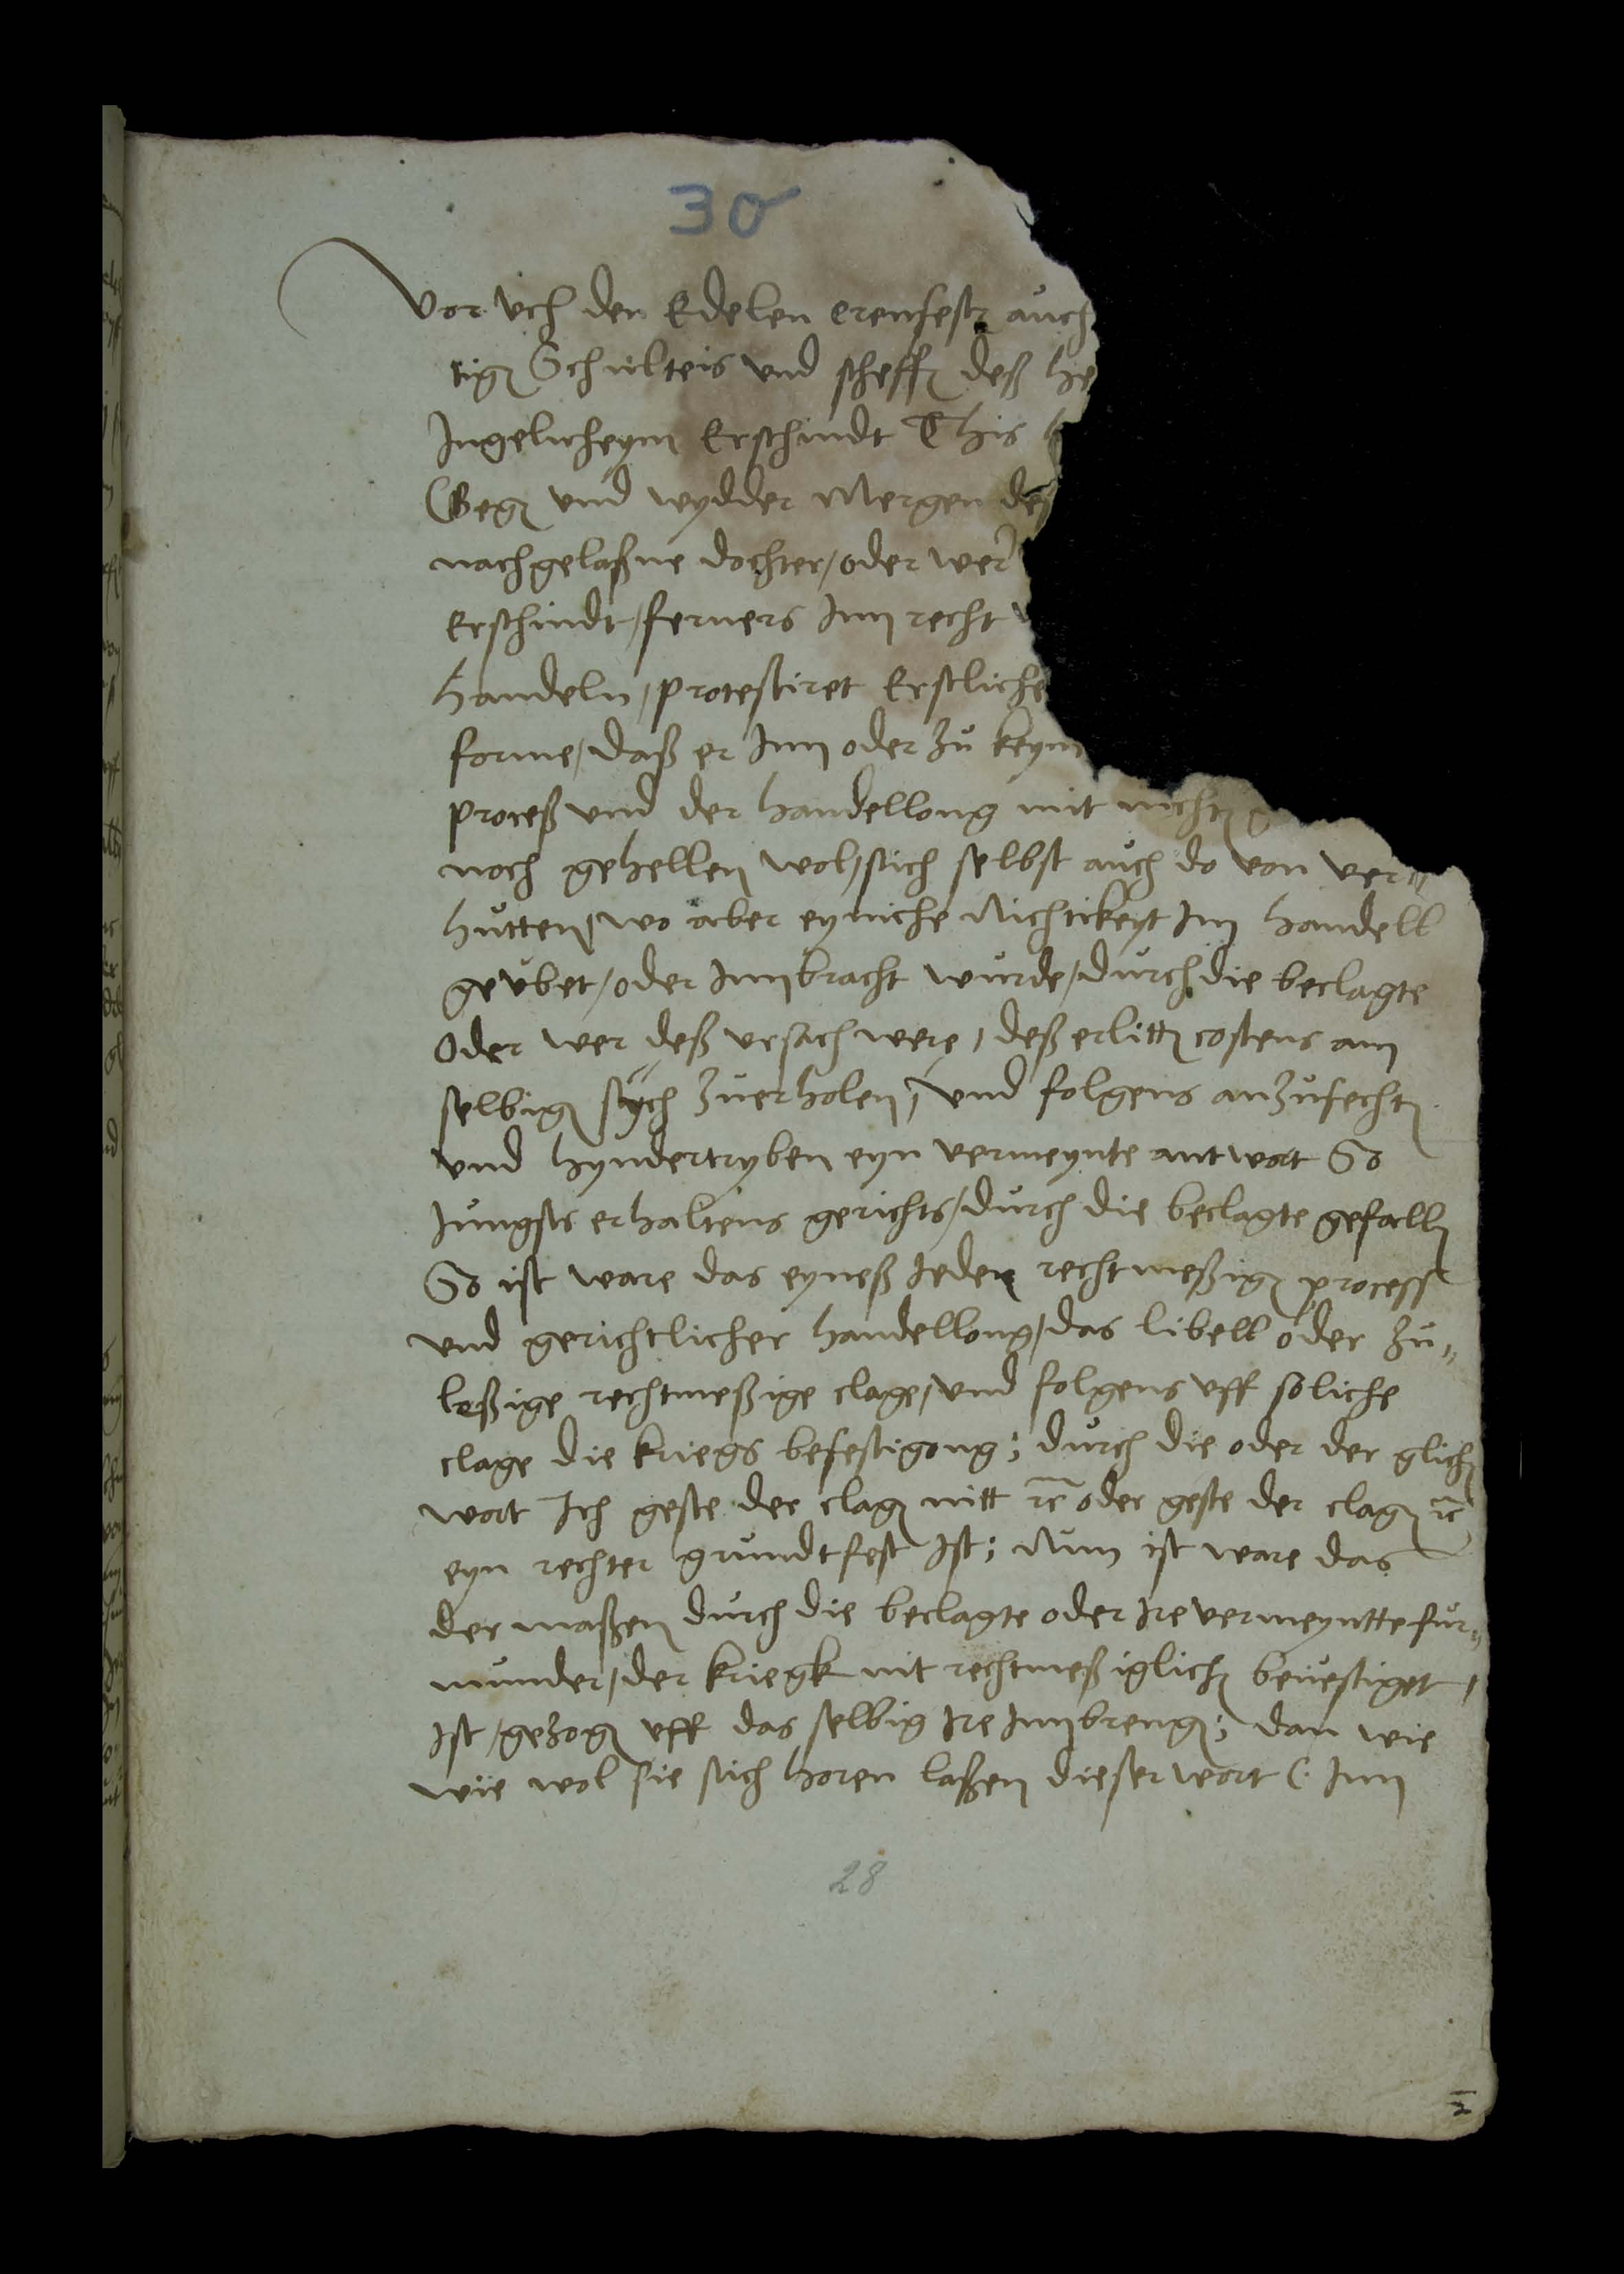 30
Vor vch den Edelen erenfestē auch
tigē Schulteis vnd scheffē deß
Ingelnheym Erschindt This
Gegē vnd wydder Mergen
nachgelaßne dochter / oder wer
Erschindt / ferners Inn recht
handeln / protestiret Erstliche
forme / daß er Inn oder zu keym
proceß vnd der handellong mit nichtē
noch gehellen wol / sich selbst auch do von ver„
hutten / wo aber eyniche Nichtikeyt Im handell
geubet / oder Innbracht wurde / durch die beclagte
Oder wer deß vrsach were / deß erlittē costens am
selbigē sych zuerholen / vnd folgens anzufechtē
vnd hyndertryben eyn vermeynte antwort So
Jungsts erhaltens gerichts / durch die beclagte gefallē
So ist ware das eyneß Jeden rechtmeßigē process
vnd gerichtlicher handellong / das libell oder zu„
leßige rechtmeßige clage / vnd folgens vff soliche
clage die kriegs befestigong ; durch die oder der glichē
wort Ich geste der clagē nitt rc̄ oder geste der clagē rc̄
eyn rechter grundtfest Ist ; Nun ist ware das
der maßen durch die beclagte oder Ire vermeyntte fur„
munder / der kriegk nit rechtmeßiglichē beuestiget /
Ist / gezogē vff das selbig Ire Innbrengē ; dan wie
wie wol sie sich horen laßen dieser wort (: Inn
28